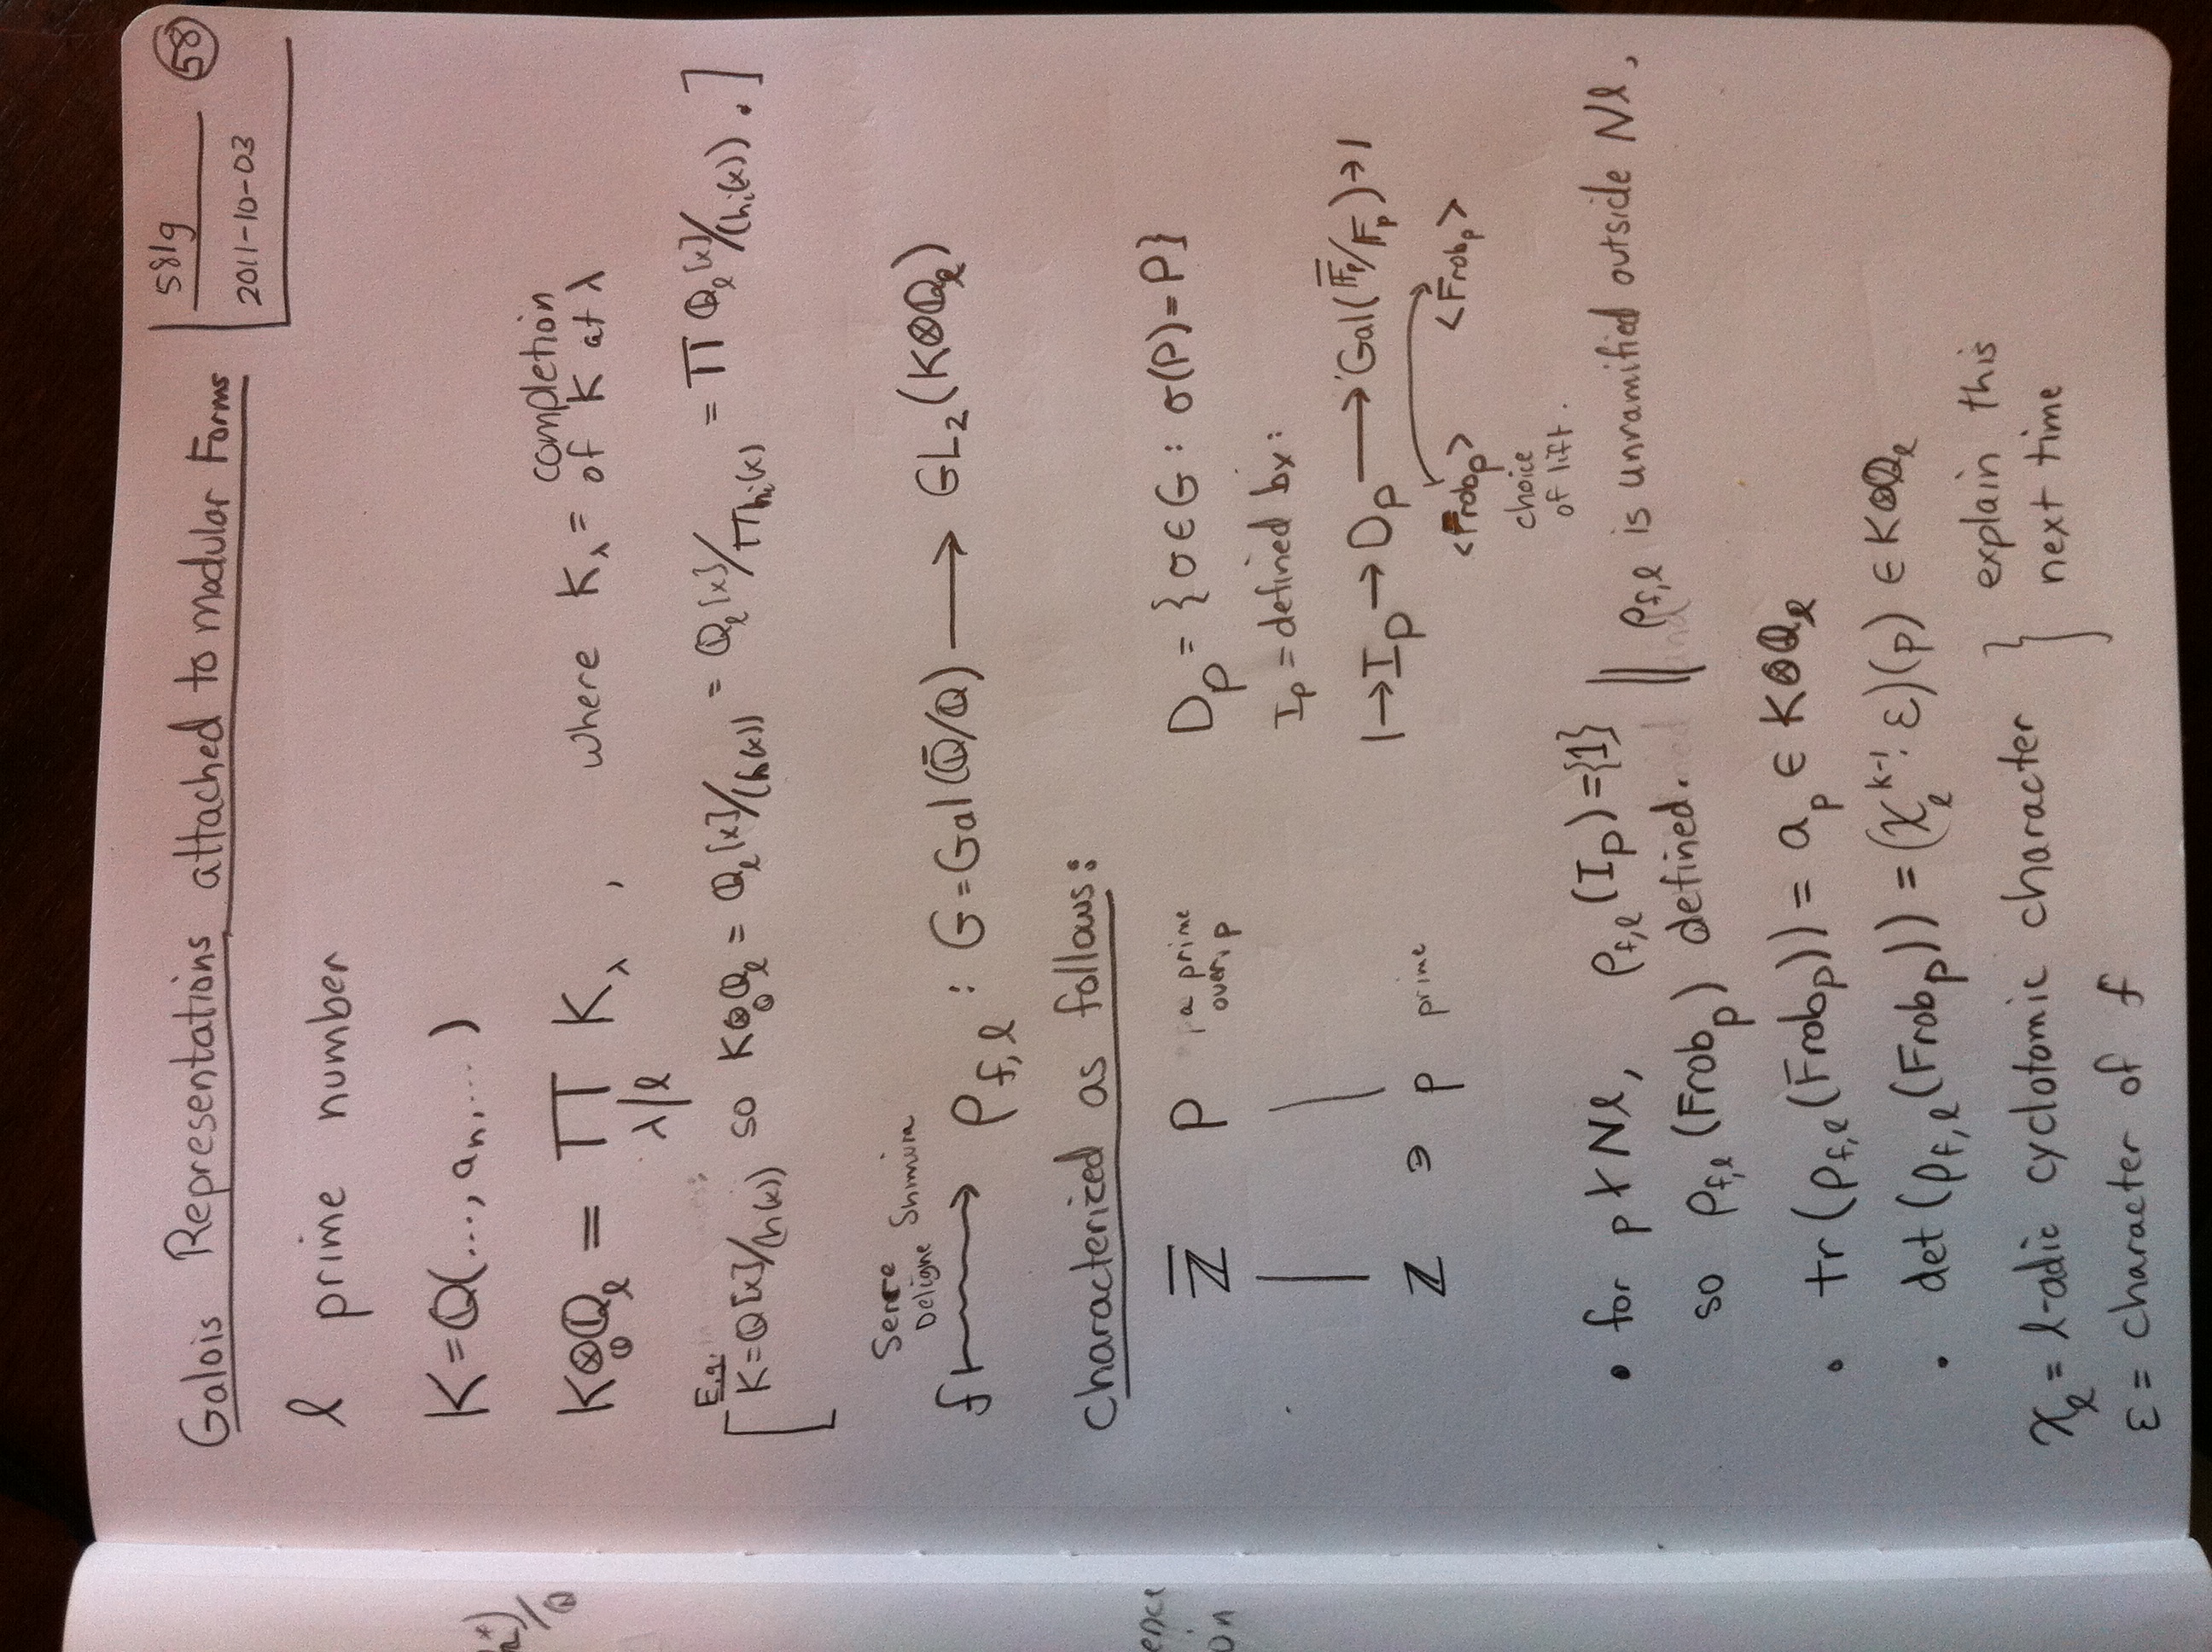 581g
2011-10-03
58
Galois Representations attached to modular Forms
ℓ prime number
K=ℚ(..., aₙ, ...)
K⊗_ℚ ℚ_ℓ = ∏_{λ|ℓ} K_λ , where K_λ = completion of K at λ
E.g.
[K=ℚ[x]/(h(x)) so K⊗_ℚ ℚ_ℓ = ℚ_ℓ[x]/(h(x)) = ℚ_ℓ[x]/∏hᵢ(x) = ∏ ℚ_ℓ[x]/(hᵢ(x)).]
Serre
Deligne Shimura
f ⟼ ρ_{f,ℓ} : G=Gal(ℚ̄/ℚ) ⟶ GL₂(K⊗ℚ_ℓ)
characterized as follows:
ℤ̄ P a prime over p D_P = {σ∈G : σ(P)=P}
| | I_P = defined by:
ℤ ∋ p prime 1→I_P→D_P⟶Gal(𝔽̄_p/𝔽_p)→1
<Frob_p> <Frob_p>
choice
of lift.
• for p∤Nℓ, ρ_{f,ℓ}(I_P)={1} ‖ ρ_{f,ℓ} is unramified outside Nℓ,
so ρ_{f,ℓ}(Frob_p) defined.
• tr(ρ_{f,ℓ}(Frob_p)) = a_p ∈ K⊗ℚ_ℓ
• det(ρ_{f,ℓ}(Frob_p)) = (χ_ℓ^{k-1}·ε)(p) ∈ K⊗ℚ_ℓ
χ_ℓ = ℓ-adic cyclotomic character } explain this
ε = character of f next time
ence
on